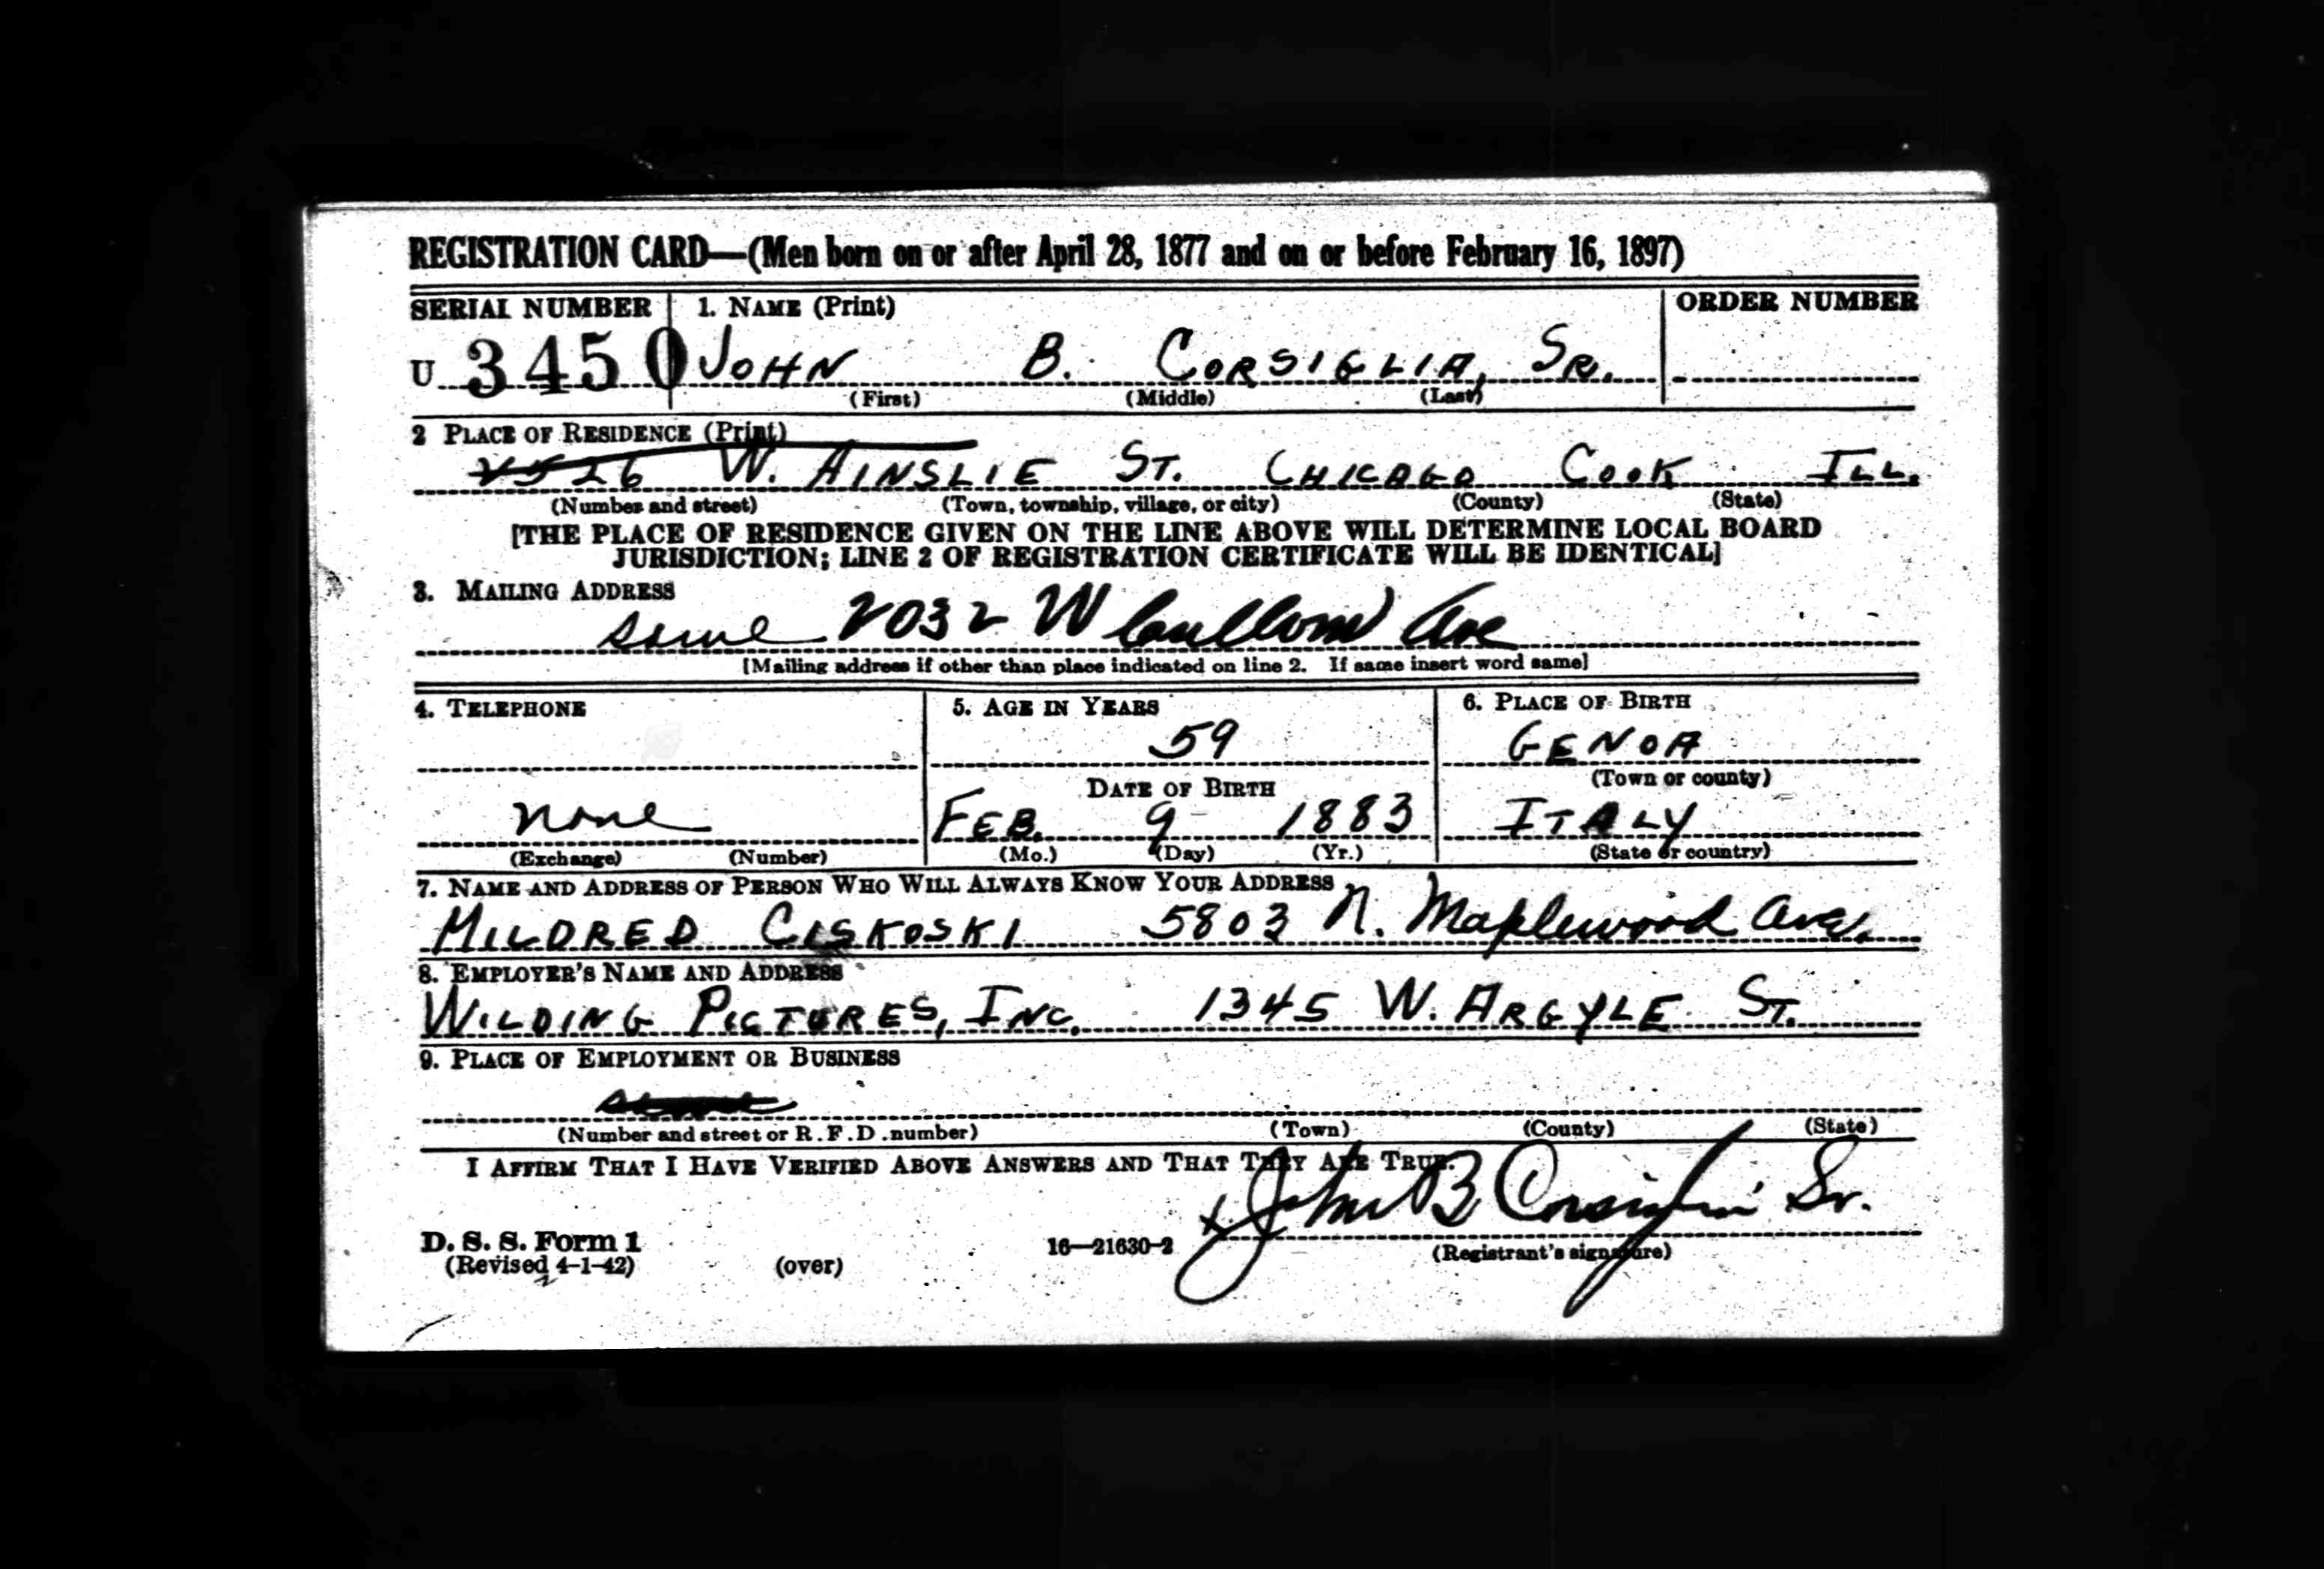 REGISTRATION CARD—(Men born on or after April 28, 1877 and on or before February 16, 1897)
SERIAL NUMBER 1. NAME (Print) ORDER NUMBER
U 3450 JOHN B. CORSIGLIA, SR.
(First) (Middle) (Last)
2 PLACE OF RESIDENCE (Print)
2526 W. AINSLIE ST. CHICAGO COOK ILL.
(Number and street) (Town, township, village, or city) (County) (State)
[THE PLACE OF RESIDENCE GIVEN ON THE LINE ABOVE WILL DETERMINE LOCAL BOARD
JURISDICTION; LINE 2 OF REGISTRATION CERTIFICATE WILL BE IDENTICAL]
3. MAILING ADDRESS
same 2032 W Cullom Ave
[Mailing address if other than place indicated on line 2. If same insert word same]
4. TELEPHONE 5. AGE IN YEARS 6. PLACE OF BIRTH
59 GENOA
DATE OF BIRTH (Town or county)
none FEB. 9 1883 ITALY
(Exchange) (Number) (Mo.) (Day) (Yr.) (State or country)
7. NAME AND ADDRESS OF PERSON WHO WILL ALWAYS KNOW YOUR ADDRESS
MILDRED CISKOSKI 5803 N. Maplewood Ave.
8. EMPLOYER'S NAME AND ADDRESS
WILDING PICTURES, INC. 1345 W. ARGYLE ST.
9. PLACE OF EMPLOYMENT OR BUSINESS
same
(Number and street or R.F.D. number) (Town) (County) (State)
I AFFIRM THAT I HAVE VERIFIED ABOVE ANSWERS AND THAT THEY ARE TRUE.
x John B Corsiglia Sr.
D. S. S. Form 1
(Revised 4-1-42) (over) 16—21630-2 (Registrant's signature)